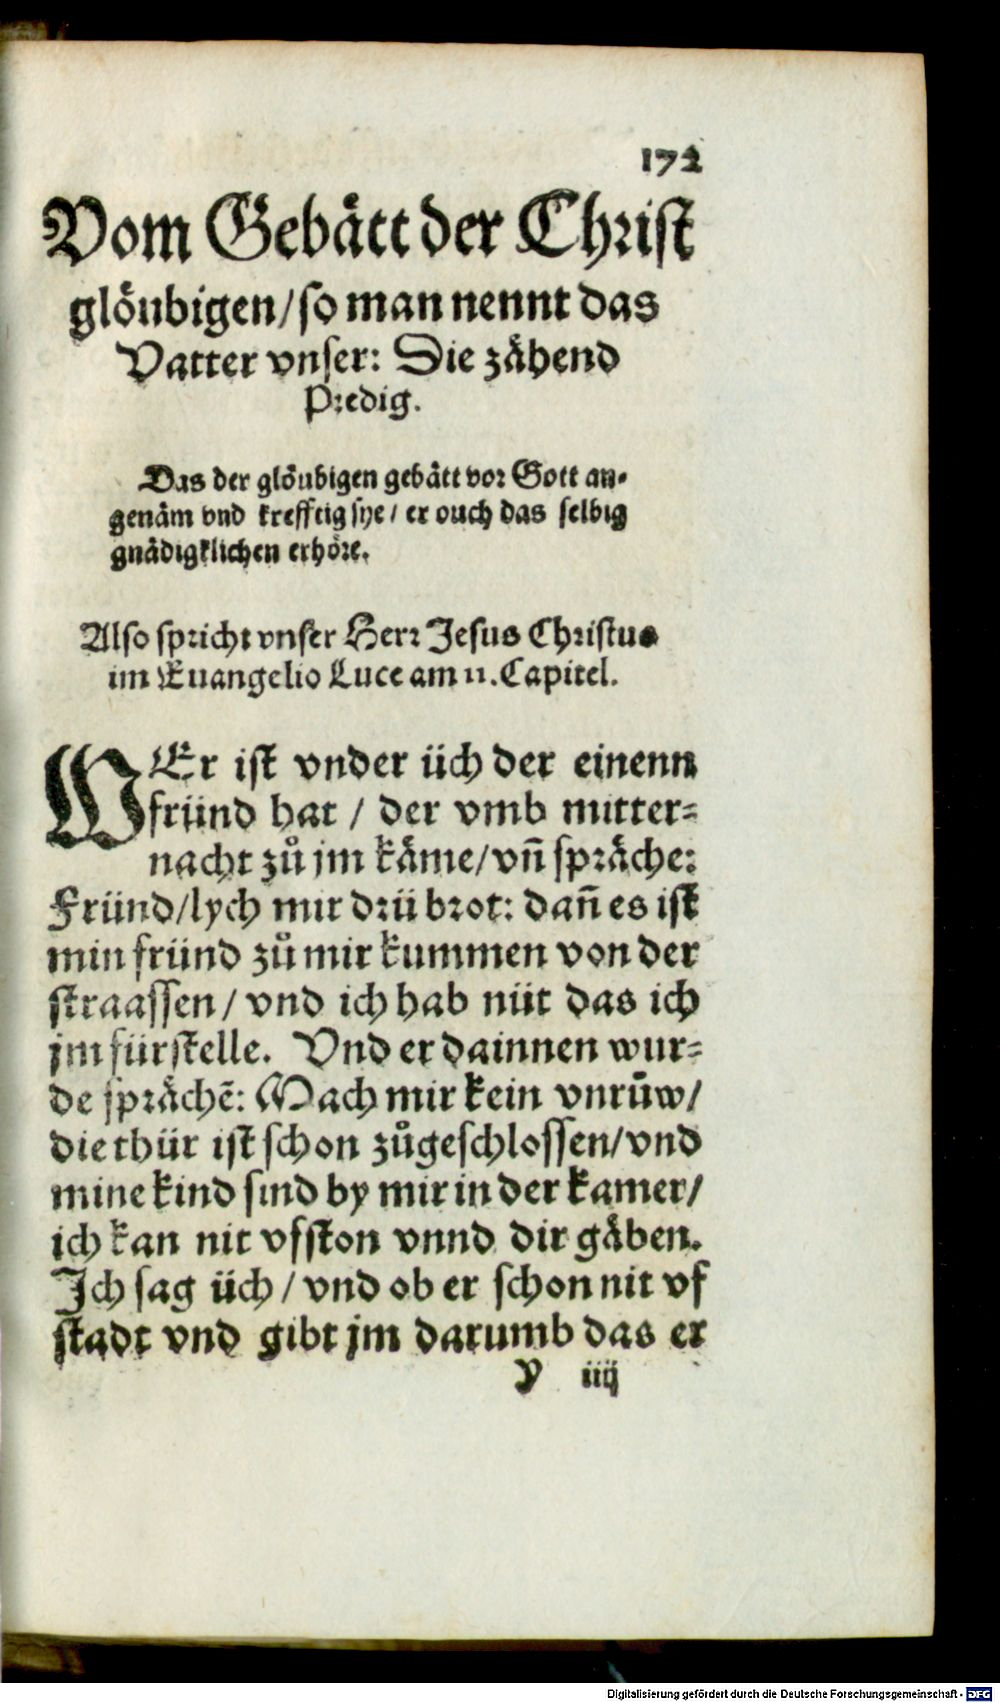 172
Vom Gebätt der Christ
glöubigen/so man nennt das
Vatter vnser: Die zähend
Predig.
Das der glöubigen gebätt vor Gott an-
genäm vnd krefftig sye/ er ouch das selbig
gnädigklichen erhöre.
Also spricht vnser Herr Jesus Christus
im Euangelio Luce am 11. Capitel.
WEr ist vnder üch der einenn
fründ hat / der vmb mitter-
nacht zů jm käme/vñ spräche:
Fründ/lych mir drü brot: dañ es ist
min fründ zů mir kummen von der
straassen/ vnd ich hab nüt das ich
jm fürstelle. Vnd er dainnen wur-
de sprächẽ: Mach mir kein vnrůw/
die thür ist schon zůgeschlossen/vnd
mine kind sind by mir in der kamer/
ich kan nit vfston vnnd dir gäben.
Ich sag üch / vnd ob er schon nit vf
stadt vnd gibt jm darumb das er
y iiij
Digitalisierung gefördert durch die Deutsche Forschungsgemeinschaft - DFG